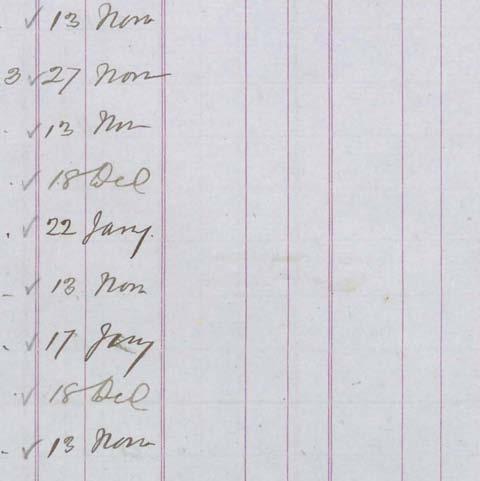 ✓ 13 Novr
3 ✓ 27 Novr
✓ 13 Nov
✓ 18 Dec
✓ 22 Jany.
✓ 13 Novr
✓ 17 Jany
✓ 18 Dec
✓ 13 Novr